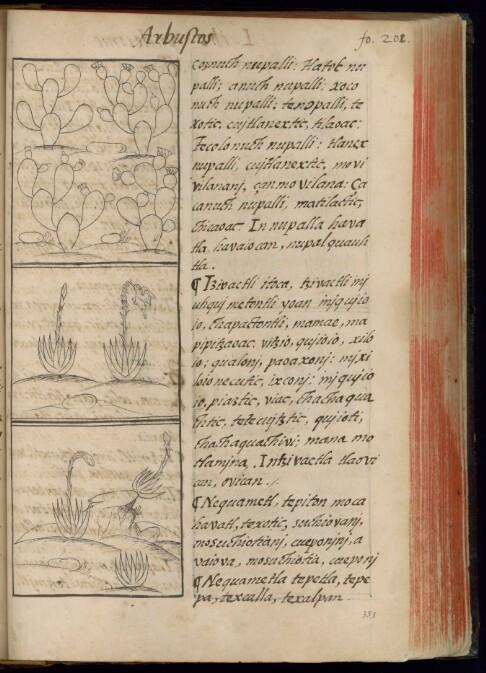 Arbustos
fo. 201.
conuch nupalli: Hatoc nu
palli; anuch nupalli; xoco
nuch nupalli; tenopalli, te
xotic, cujtlanextic, tlaoac:
Tecolonuch nupalli: tlanex
nupalli, cujtlanextic, movi
vilanani, çan movilana: Ca
canuch nupalli, matilactic,
chicaoac. In nupalla hava
tla havaiocan, nupalquauh
tla.
¶ Tzivactli itoca, tzivactli inj
uhquj metontli yoan injqujio
io, thapactontli, mamae, ma
pipitzaoac vitzio, qujoio, xilo
io; qualonj, paoaxonj: injxi
loio necutic, ixconj: injqujio
io, piaztic, viac, chachaqua
chtic, tetecujtztic, qujioti,
chachaquachivi; mana mo
tlamjna, Intzivactla tlaovi
can, ovican.
¶ Nequametl, tepiton moca
havatl, texotic, suchiovanj,
mosuchiotianj, cueponjnj, a
vaiova, mosuchiotia, cueponj
¶ Nequametla tepetla, tepe
pa, texcalla, texalpan
353